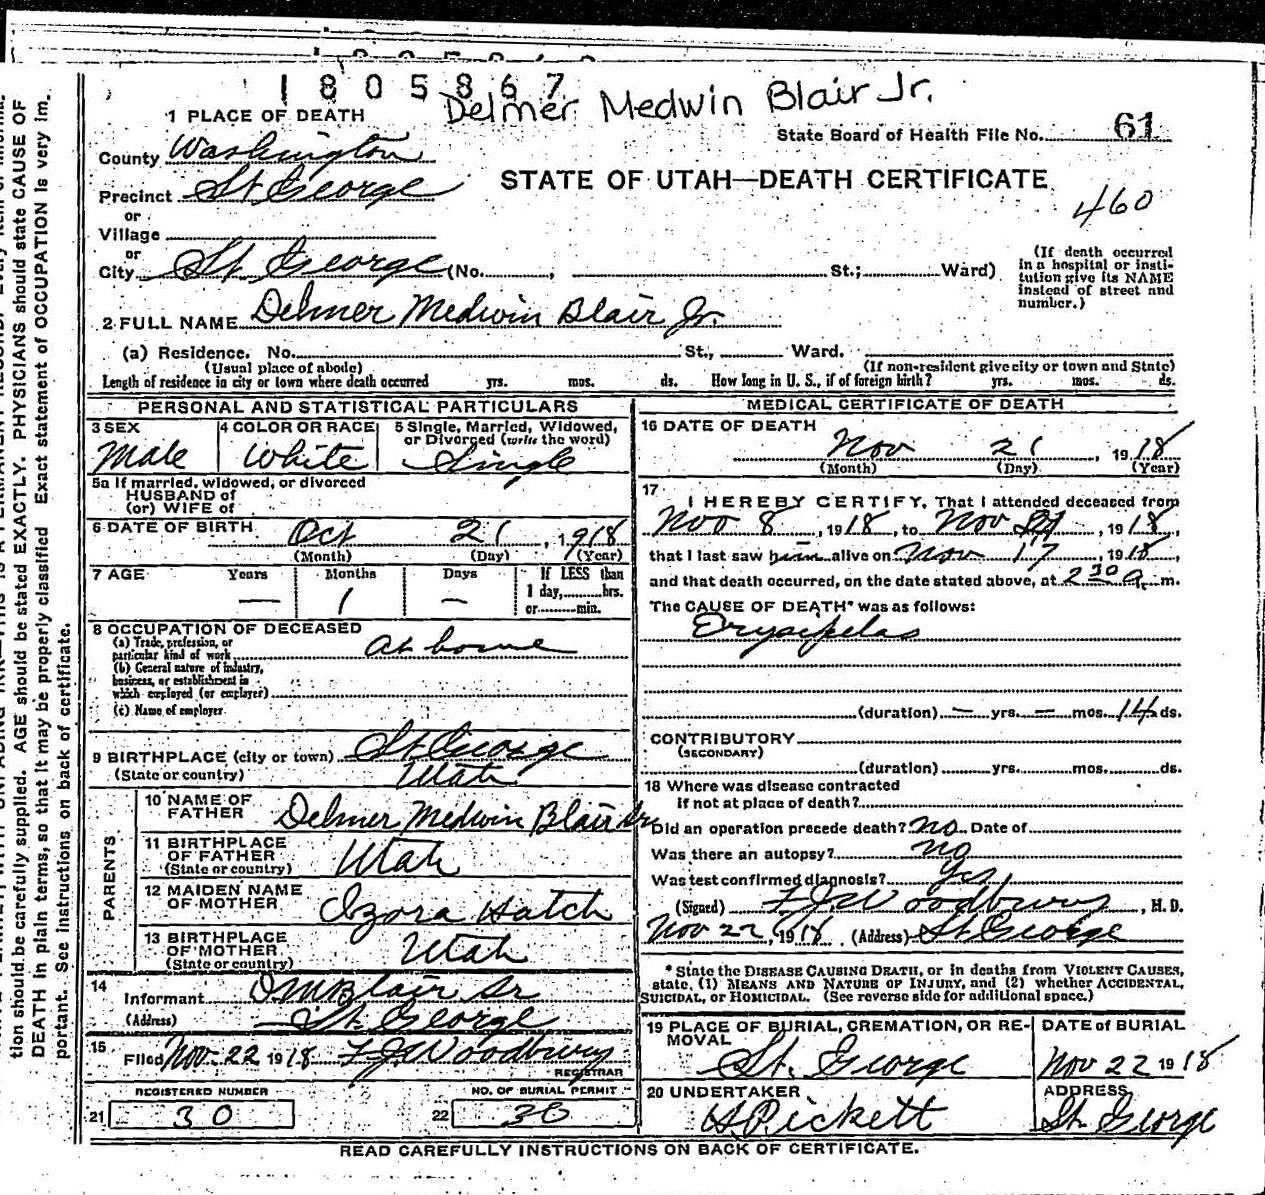 1805867
Delmer Medwin Blair Jr.
1 PLACE OF DEATH
State Board of Health File No. 61
County Washington
Precinct St George
STATE OF UTAH—DEATH CERTIFICATE
460
or
Village
or
City St George (No. , St.; Ward)
(If death occurred in a hospital or insti-
tution give its NAME
instead of street and
number.)
2 FULL NAME Delmer Medwin Blair Jr.
(a) Residence. No. St., Ward.
(Usual place of abode) (If non-resident give city or town and State)
Length of residence in city or town where death occurred yrs. mos. ds. How long in U. S., if of foreign birth? yrs. mos. ds.
PERSONAL AND STATISTICAL PARTICULARS
3 SEX
Male
4 COLOR OR RACE
White
5 Single, Married, Widowed,
or Divorced (write the word)
Single
5a If married, widowed, or divorced
HUSBAND of
(or) WIFE of
6 DATE OF BIRTH Oct 21, 1918
(Month) (Day) (Year)
7 AGE Years Months Days If LESS than
— 1 — 1 day, hrs.
or min.
8 OCCUPATION OF DECEASED
(a) Trade, profession, or
particular kind of work At home
(b) General nature of industry,
business, or establishment in
which employed (or employer)
(c) Name of employer
9 BIRTHPLACE (city or town) St George
(State or country) Utah
PARENTS
10 NAME OF
FATHER Delmer Medwin Blair Sr
11 BIRTHPLACE
OF FATHER
(State or country) Utah
12 MAIDEN NAME
OF MOTHER Izora Hatch
13 BIRTHPLACE
OF MOTHER
(State or country) Utah
14
Informant D M Blair Sr
(Address) St. George
15
Filed Nov. 22 1918 F J Woodbury
REGISTRAR
REGISTERED NUMBER
21 30
NO. OF BURIAL PERMIT
22 30
MEDICAL CERTIFICATE OF DEATH
16 DATE OF DEATH
Nov 21, 1918
(Month) (Day) (Year)
17
I HEREBY CERTIFY, That I attended deceased from
Nov 8, 1918, to Nov , 1918,
that I last saw him alive on Nov 17, 1918,
and that death occurred, on the date stated above, at 2 30 a. m.
The CAUSE OF DEATH* was as follows:
Erysipelas
(duration) — yrs. — mos. 14 ds.
CONTRIBUTORY
(SECONDARY)
(duration) yrs. mos. ds.
18 Where was disease contracted
if not at place of death?
Did an operation precede death? No. Date of
Was there an autopsy? no
Was test confirmed diagnosis? Yes
(Signed) F J Woodbury, M. D.
Nov 22, 1918, (Address) St George
* State the DISEASE CAUSING DEATH, or in deaths from VIOLENT CAUSES,
state, (1) MEANS AND NATURE OF INJURY, and (2) whether ACCIDENTAL,
SUICIDAL, or HOMICIDAL. (See reverse side for additional space.)
19 PLACE OF BURIAL, CREMATION, OR RE-
MOVAL
St. George
DATE of BURIAL
Nov 22 1918
20 UNDERTAKER
H Pickett
ADDRESS
St. George
READ CAREFULLY INSTRUCTIONS ON BACK OF CERTIFICATE.
tion should be carefully supplied. AGE should be stated EXACTLY. PHYSICIANS should state CAUSE OF
DEATH in plain terms, so that it may be properly classified. Exact statement of OCCUPATION is very im-
portant. See instructions on back of certificate.